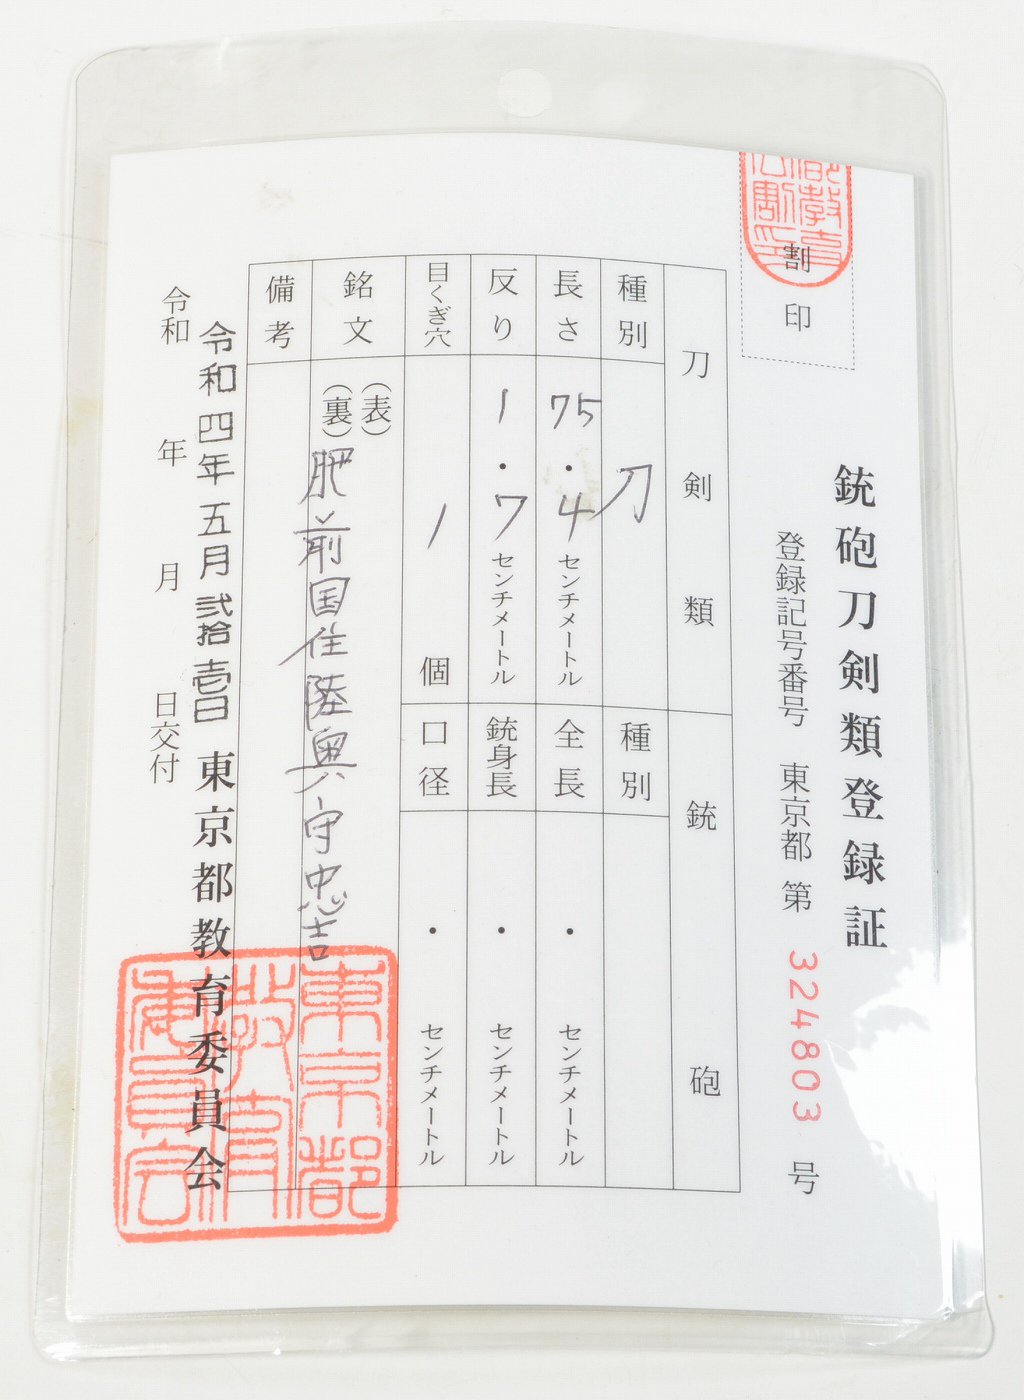 割印
銃砲刀剣類登録証
登録記号番号 東京都 第 324803 号
刀剣類
銃砲
種別
刀
種別
長さ
75・4センチメートル
全長
・センチメートル
反り
1・7センチメートル
銃身長
・センチメートル
目くぎ穴
1個
口径
・センチメートル
銘文
(表)
(裏)
肥前国住陸奥守忠吉
備考
令和四年五月弐拾壱日
東京都教育委員会
令和 年 月 日交付
東京都
教育
委員会